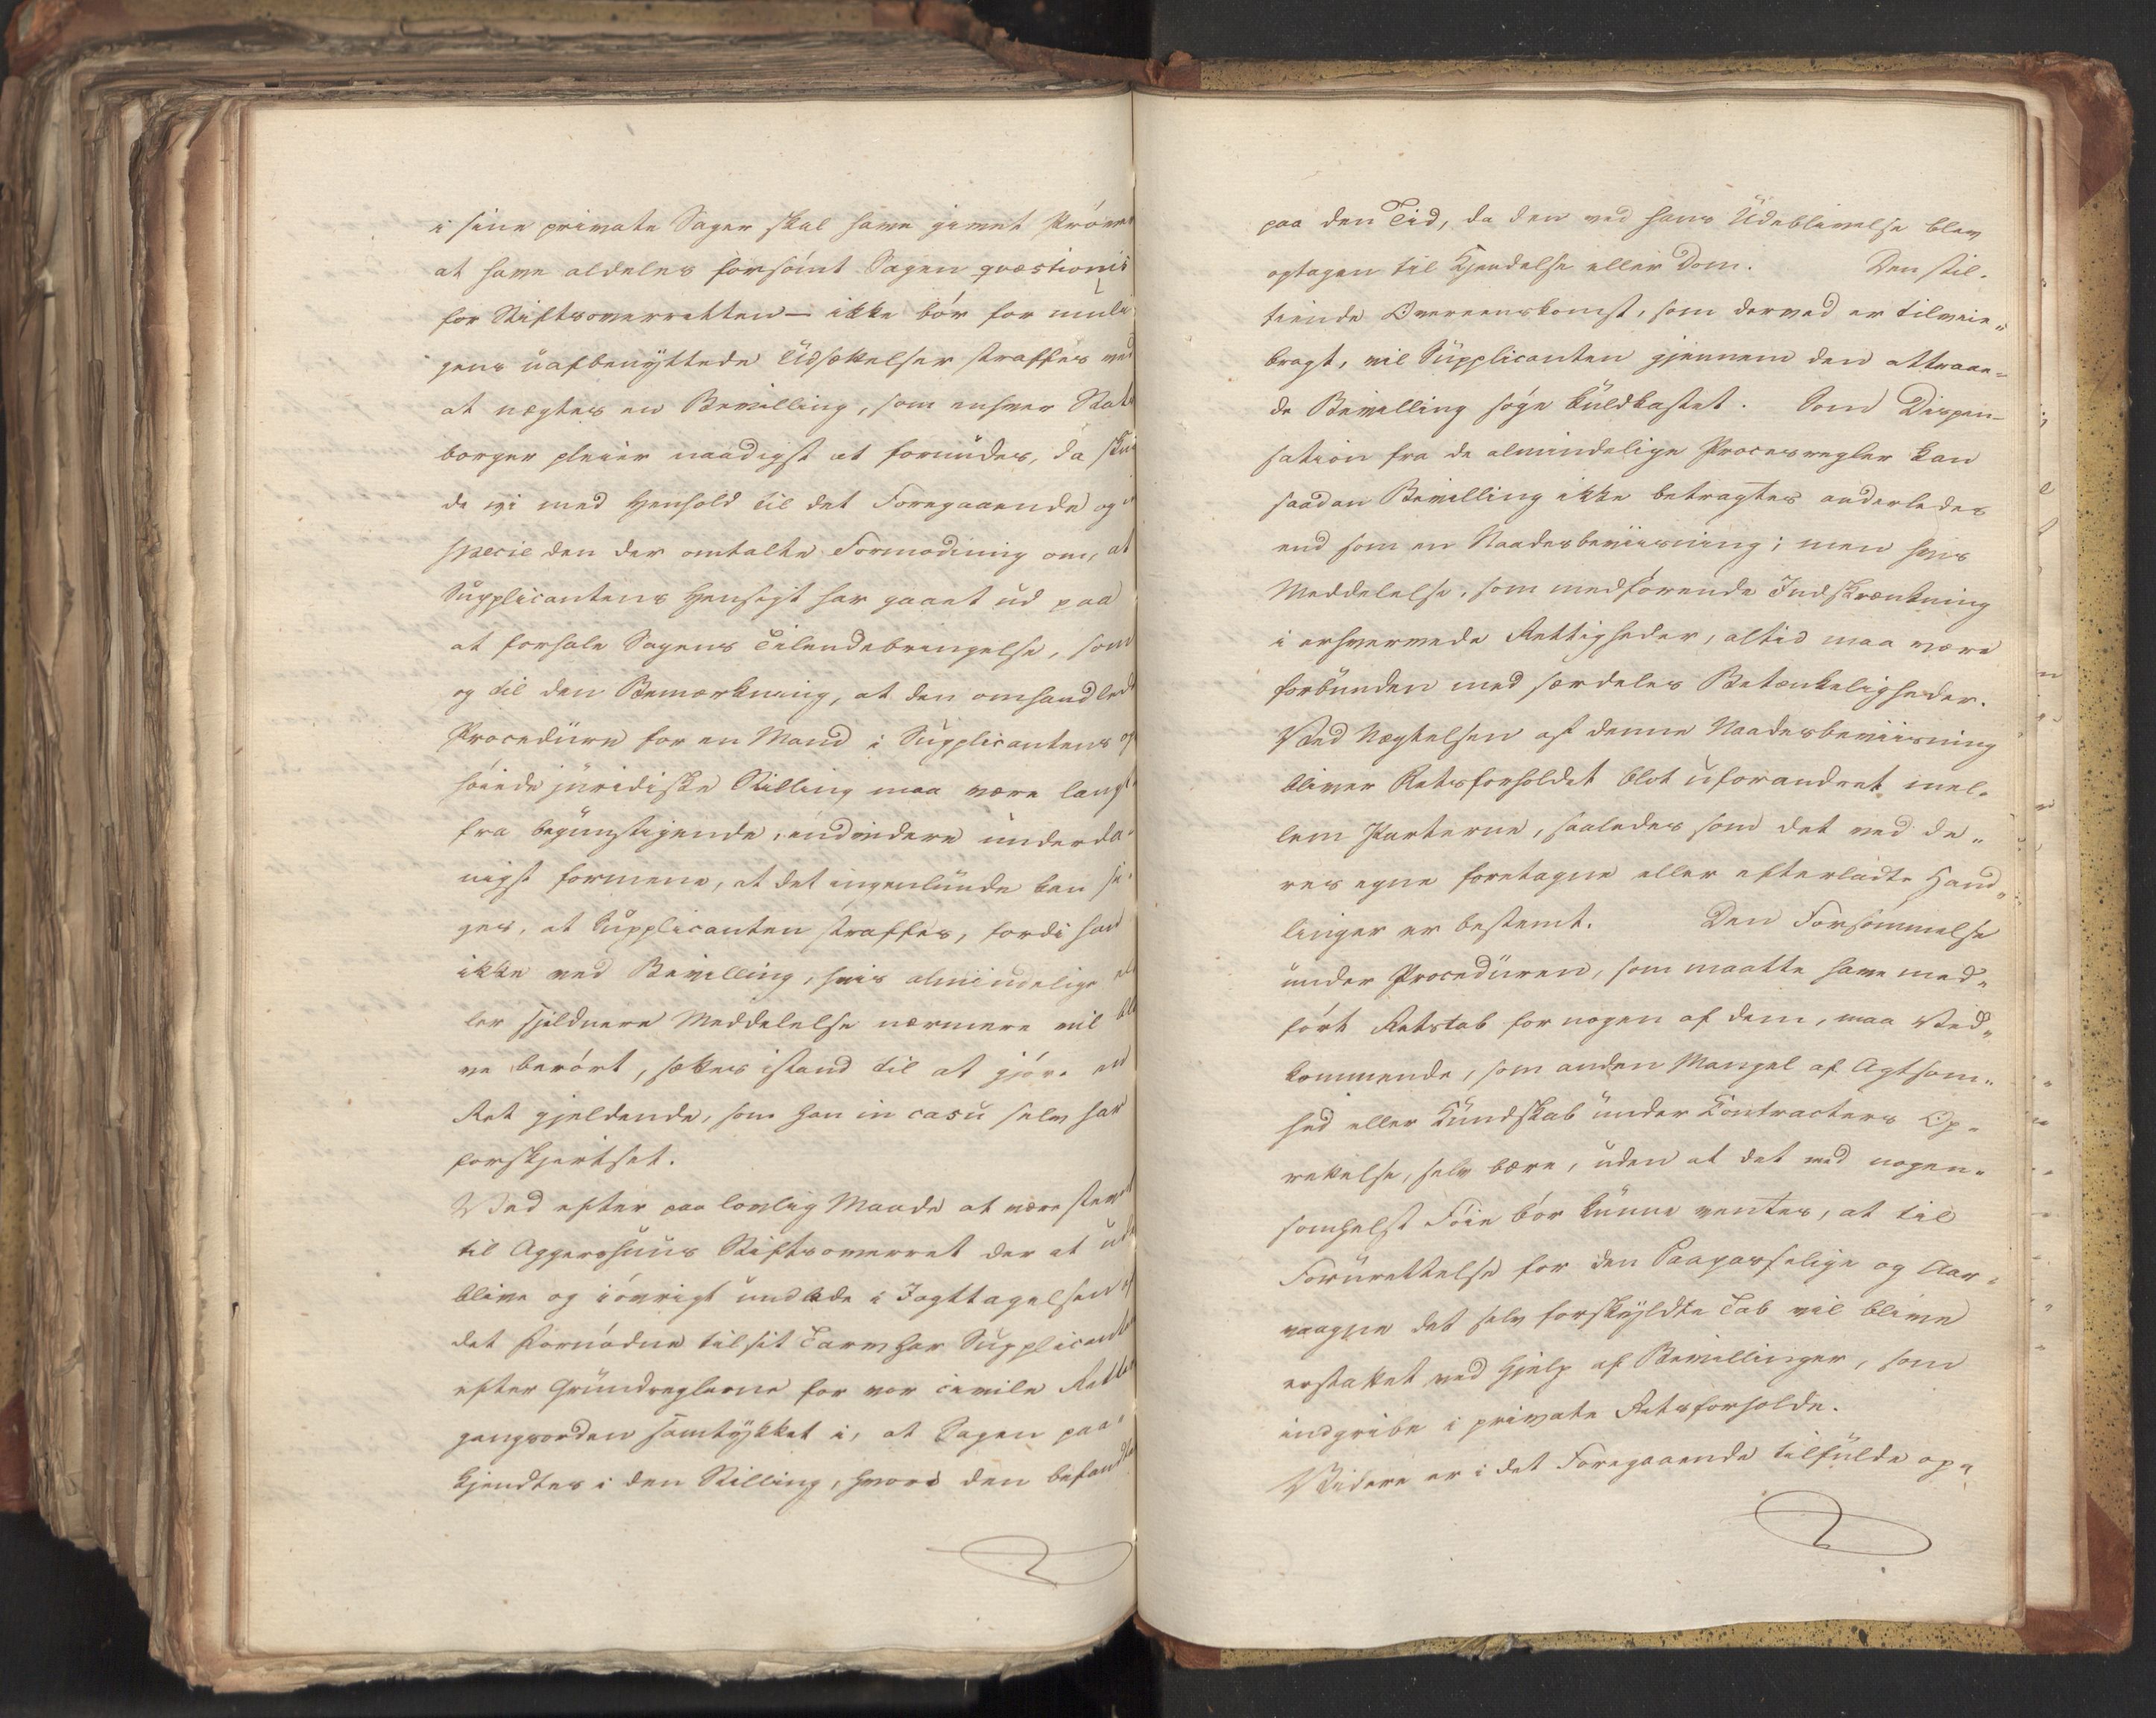 i sine private Sager skal have givet Prøver
at have aldeles forsømt Sagen qvæstionis
for Stiftsoverretten – ikke bør for muli
gens uafbenyttede Udsættelser straffes ved
at nægtes en Bevilling, som enhver Stats
borger pleier naadigst at forundes, da skul
de vi med Henhold til det Foregaaende og in
specie den der omtalte Formodning om, at
Supplicantens Hensigt har gaaet ud paa
at forhale Sagens Tilendebringelse, som
og til den Bemærkning, at den omhandlede
Procedure for en Mand i Supplicantens op
høiede juridiske Stilling maa være langt
fra begunstigende, endvidere underda-
nigst formene, at det ingenlunde kan si-
ges, at Supplicanten straffes, fordi han
ikke ved Bevilling, hvis almindelige el
ler sjeldnere Meddelelse nærmere vil bli
ve berørt, sættes istand til at gjøre en
Ret gjeldende, som han in casu selv har
forskjertset.
Ved efter paa lovlig Maade at være stevnet
til Aggershuus Stiftsoverret der at ude
blive og iøvrigt undlade i Iagttagelsen af
det Fornødne til sit Tarv har Supplicanten
efter Grundreglerne for vor civile Retter
gangsorden samtykket i, at Sagen paa-
kjendtes i den Stilling, hvori den befandtes
paa den Tid, da den ved hans Udeblivelse blev
optagen til Kjendelse eller Dom. Den stil-
tiende Overeenskomst, som derved er tilveie-
bragt, vil Supplicanten gjennem den attraae-
de Bevilling søge kuldkastet. Som Dispen-
sation fra de almindelige Procesregler kan
saadan Bevilling ikke betragtes anderledes
end som en Naadesbeviisning; men hvis
Meddelelse, som medførende Indskrænkning
i erhvervede Rettigheder, altid maa være
forbunden med særdeles Betænkeligheder.
Ved Nægtelsen af denne Naadesbeviisning
bliver Retsforholdet blot uforandret mel-
lem Parterne, saaledes som det ved de-
res egne foretagne eller efterladte Hand-
linger er bestemt. Den Forsømmelse
under Proceduren, som maatte have med-
ført Retstab for nogen af dem, maa Ved-
kommende, som anden Mangel af Agtsom-
hed eller Kundskab under Contracters Op-
rettelse, selv bære, uden at det med nogen-
somhelst Føie bør kunne ventes, at til
Forurettelse for den Paapasselige og Aar-
vaagne det selv forskyldte Tab vil blive
erstattet ved Hjelp af Bevillinger, som
indgribe i private Retsforholde.
Videre er i det Foregaaende tilfulde op-